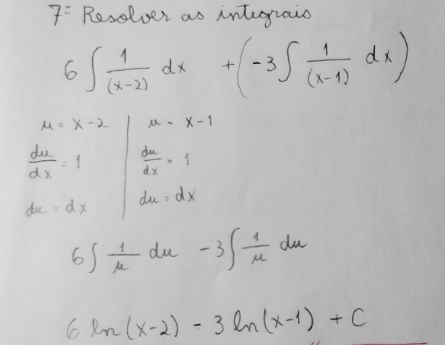 7º Resolver as integrais
6 ∫ 1/(x-2) dx + (-3 ∫ 1/(x-1) dx)
u = x-2 | u = x-1
du/dx = 1 | du/dx = 1
du = dx | du = dx
6 ∫ 1/u du -3 ∫ 1/u du
6 ln(x-2) - 3 ln(x-1) + C